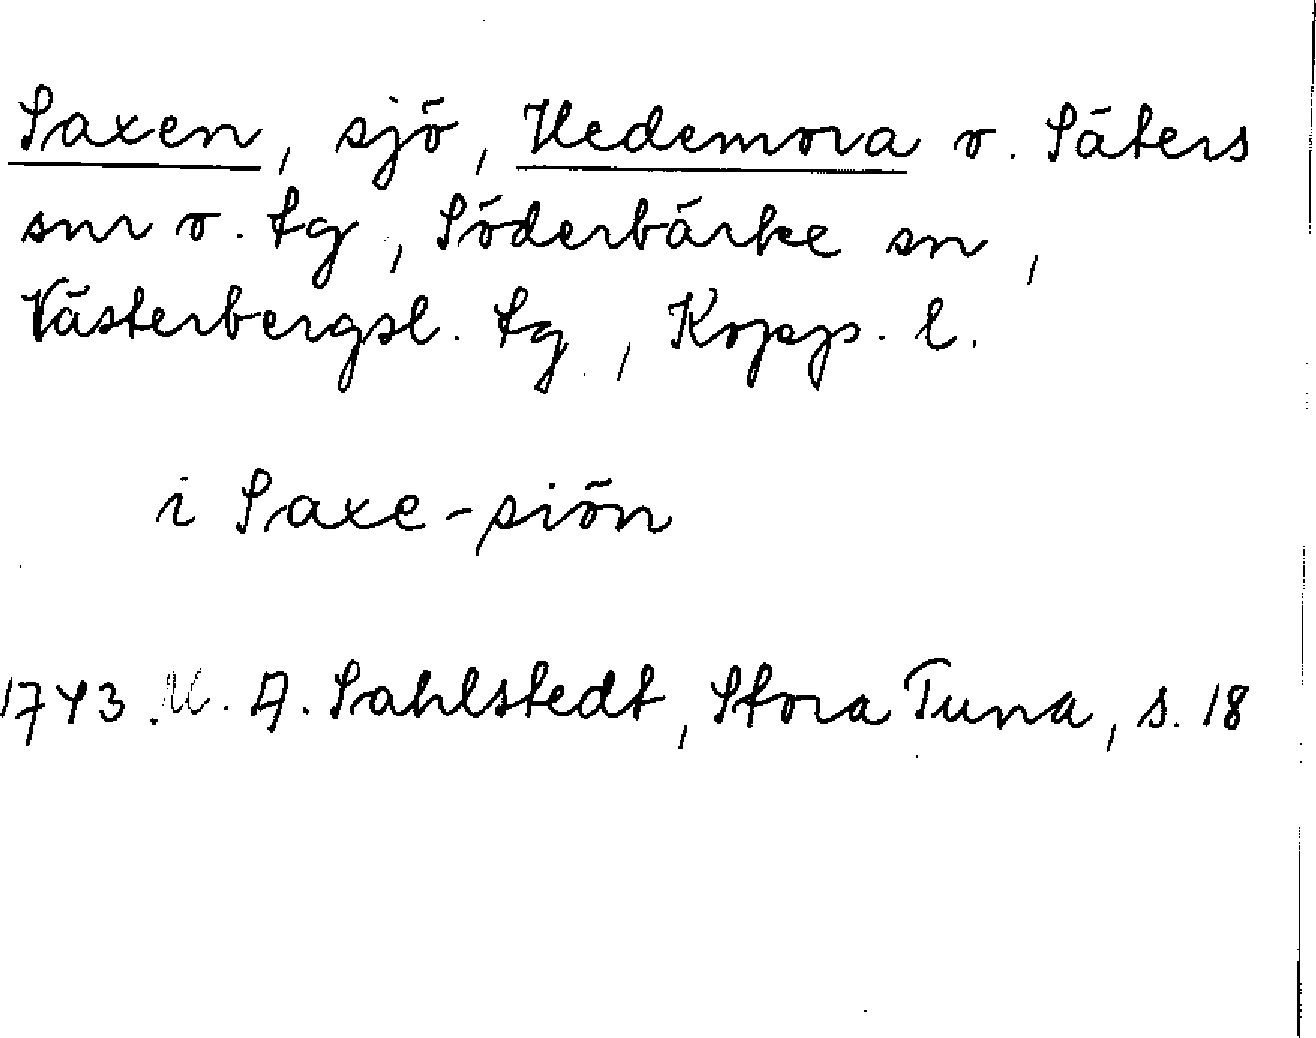 Saxen, sjö, Hedemora o. Säters
snr o. tg, Söderbärke sn,
Västerbergsl. tg, Kopps. l.
i Saxe-siön
1743. M. A. Sahlstedt, Stora Tuna, s. 18